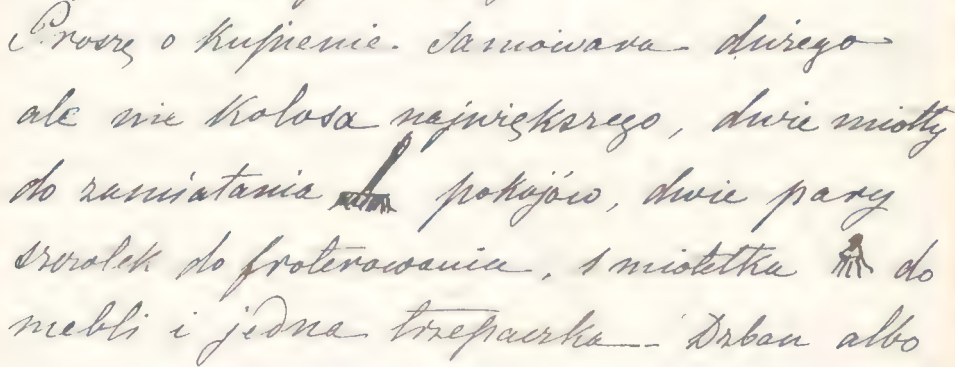 Proszę o kupienie. Samowara dużego
ale nie kolosa największego, dwie miotły
do zamiatania pokojów, dwie pary
szczotek do froterowania, 1 miotełka do
mebli i jedna trzepaczka — Dzban albo